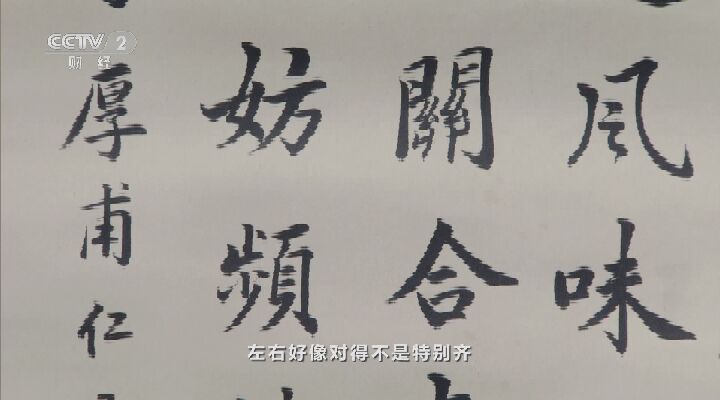 CCTV 2
财经
風味
關合
妨頻
厚甫仁
左右好像对得不是特别齐